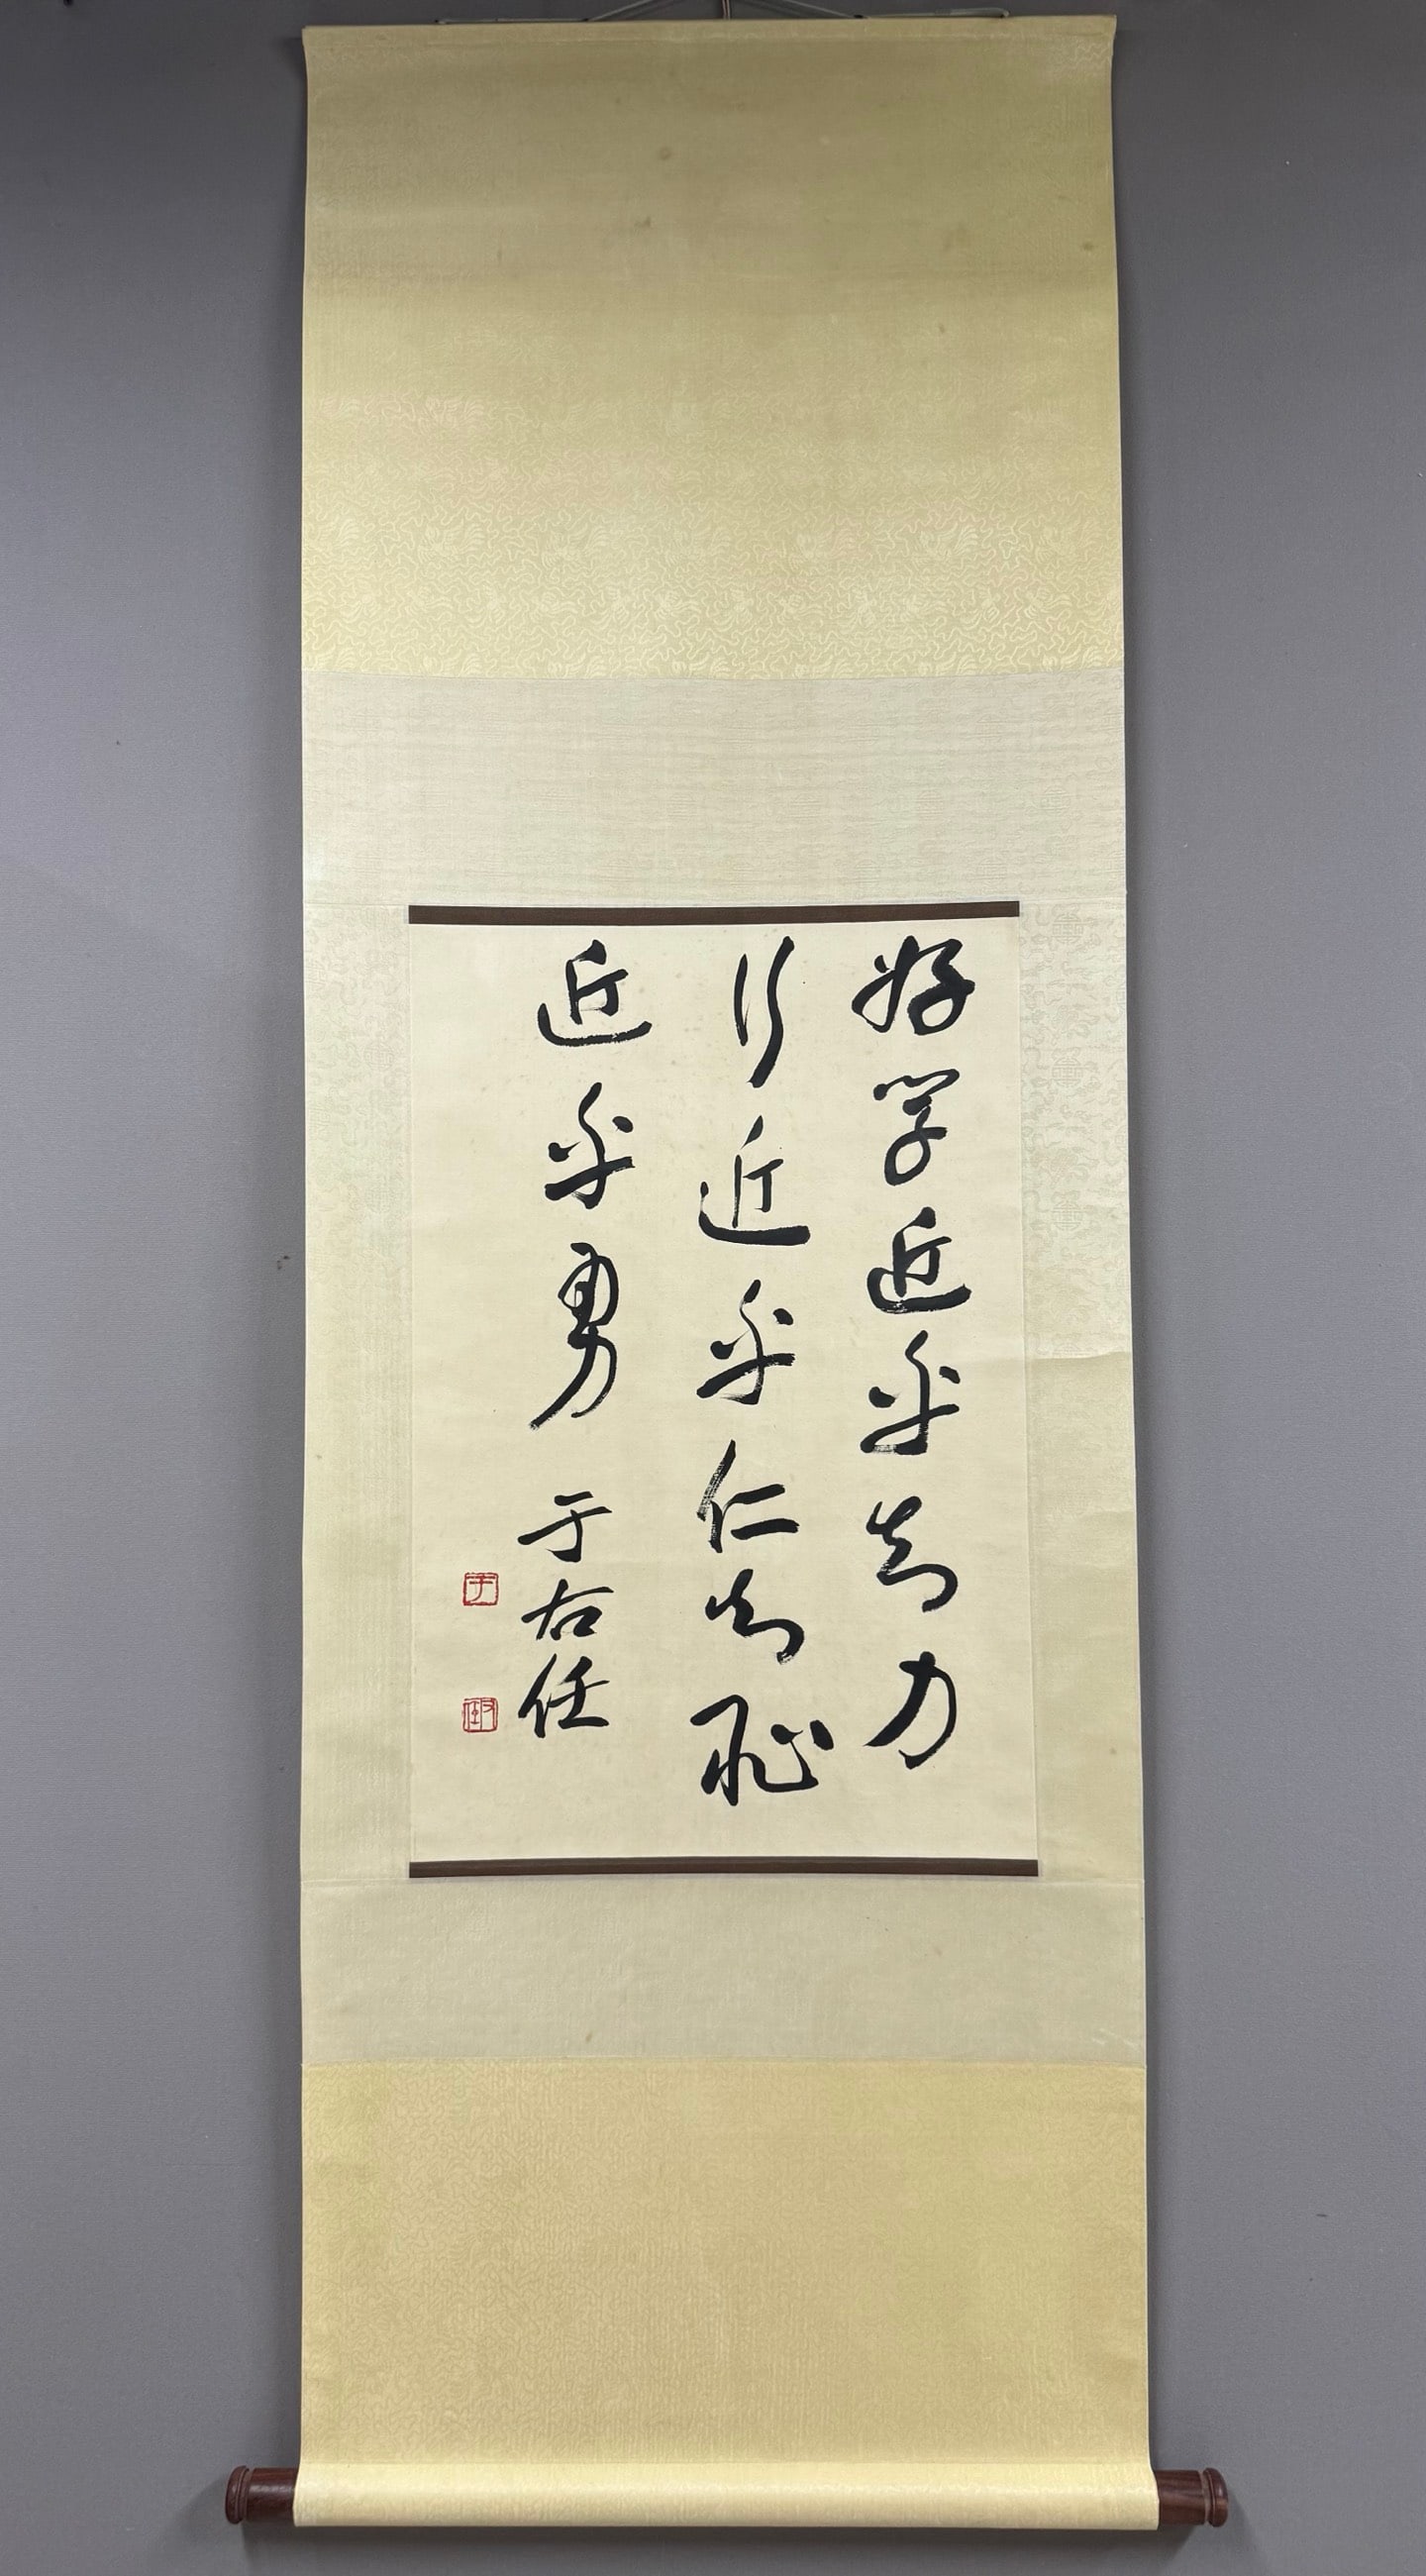 好学近乎知力
行近乎仁知耻
近乎勇 于右任